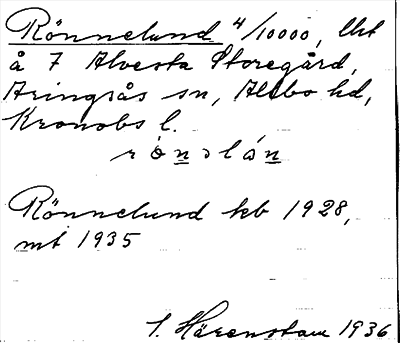 Rönnelund 4/10000, lht
å 7 Alvesta Storegård,
Aringsås sn, Allbo hd,
Kronobs l.
Rönnelund kb 1928,
mt 1935
S. Härenstam 1936